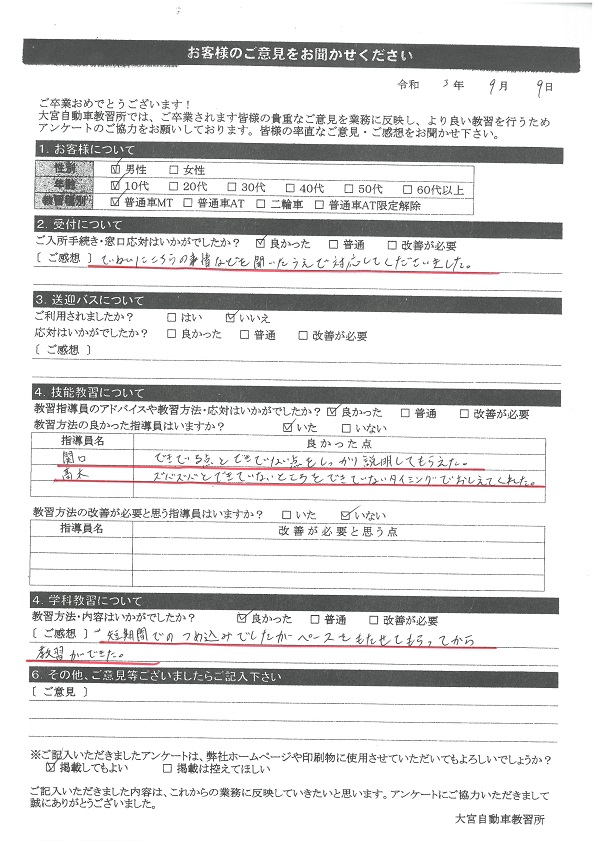 お客様のご意見をお聞かせください
令和 3年 9月 9日
ご卒業おめでとうございます！
大宮自動車教習所では、ご卒業されます皆様の貴重なご意見を業務に反映し、より良い教習を行うため
アンケートのご協力をお願いしております。皆様の率直なご意見・ご感想をお聞かせ下さい。
1. お客様について
性別 ☑男性 □女性
年齢 ☑10代 □20代 □30代 □40代 □50代 □60代以上
教習種別 ☑普通車MT □普通車AT □二輪車 □普通車AT限定解除
2. 受付について
ご入所手続き・窓口応対はいかがでしたか？ ☑良かった □普通 □改善が必要
〔 ご感想 〕 ていねいにこちらの事情などを聞いたうえで対応してくださいました。
3. 送迎バスについて
ご利用されましたか？ □はい ☑いいえ
応対はいかがでしたか？ □良かった □普通 □改善が必要
〔 ご感想 〕
4. 技能教習について
教習指導員のアドバイスや教習方法・応対はいかがでしたか？ ☑良かった □普通 □改善が必要
教習方法の良かった指導員はいますか？ ☑いた □いない
指導員名 良かった点
関口 できている点とできていない点をしっかり説明してもらえた。
高木 ズバズバとできていないところをできていないタイミングでおしえてくれた。
教習方法の改善が必要と思う指導員はいますか？ □いた ☑いない
指導員名 改善が必要と思う点
4. 学科教習について
教習方法・内容はいかがでしたか？ ☑良かった □普通 □改善が必要
〔 ご感想 〕 短期間でのつめ込みでしたがペースをもたせてもらってから
教習ができた。
6. その他、ご意見等ございましたらご記入下さい
〔 ご意見 〕
※ご記入いただきましたアンケートは、弊社ホームページや印刷物に使用させていただいてもよろしいでしょうか？
☑掲載してもよい □掲載は控えてほしい
ご記入いただきました内容は、これからの業務に反映していきたいと思います。アンケートにご協力いただきまして
誠にありがとうございました。
大宮自動車教習所